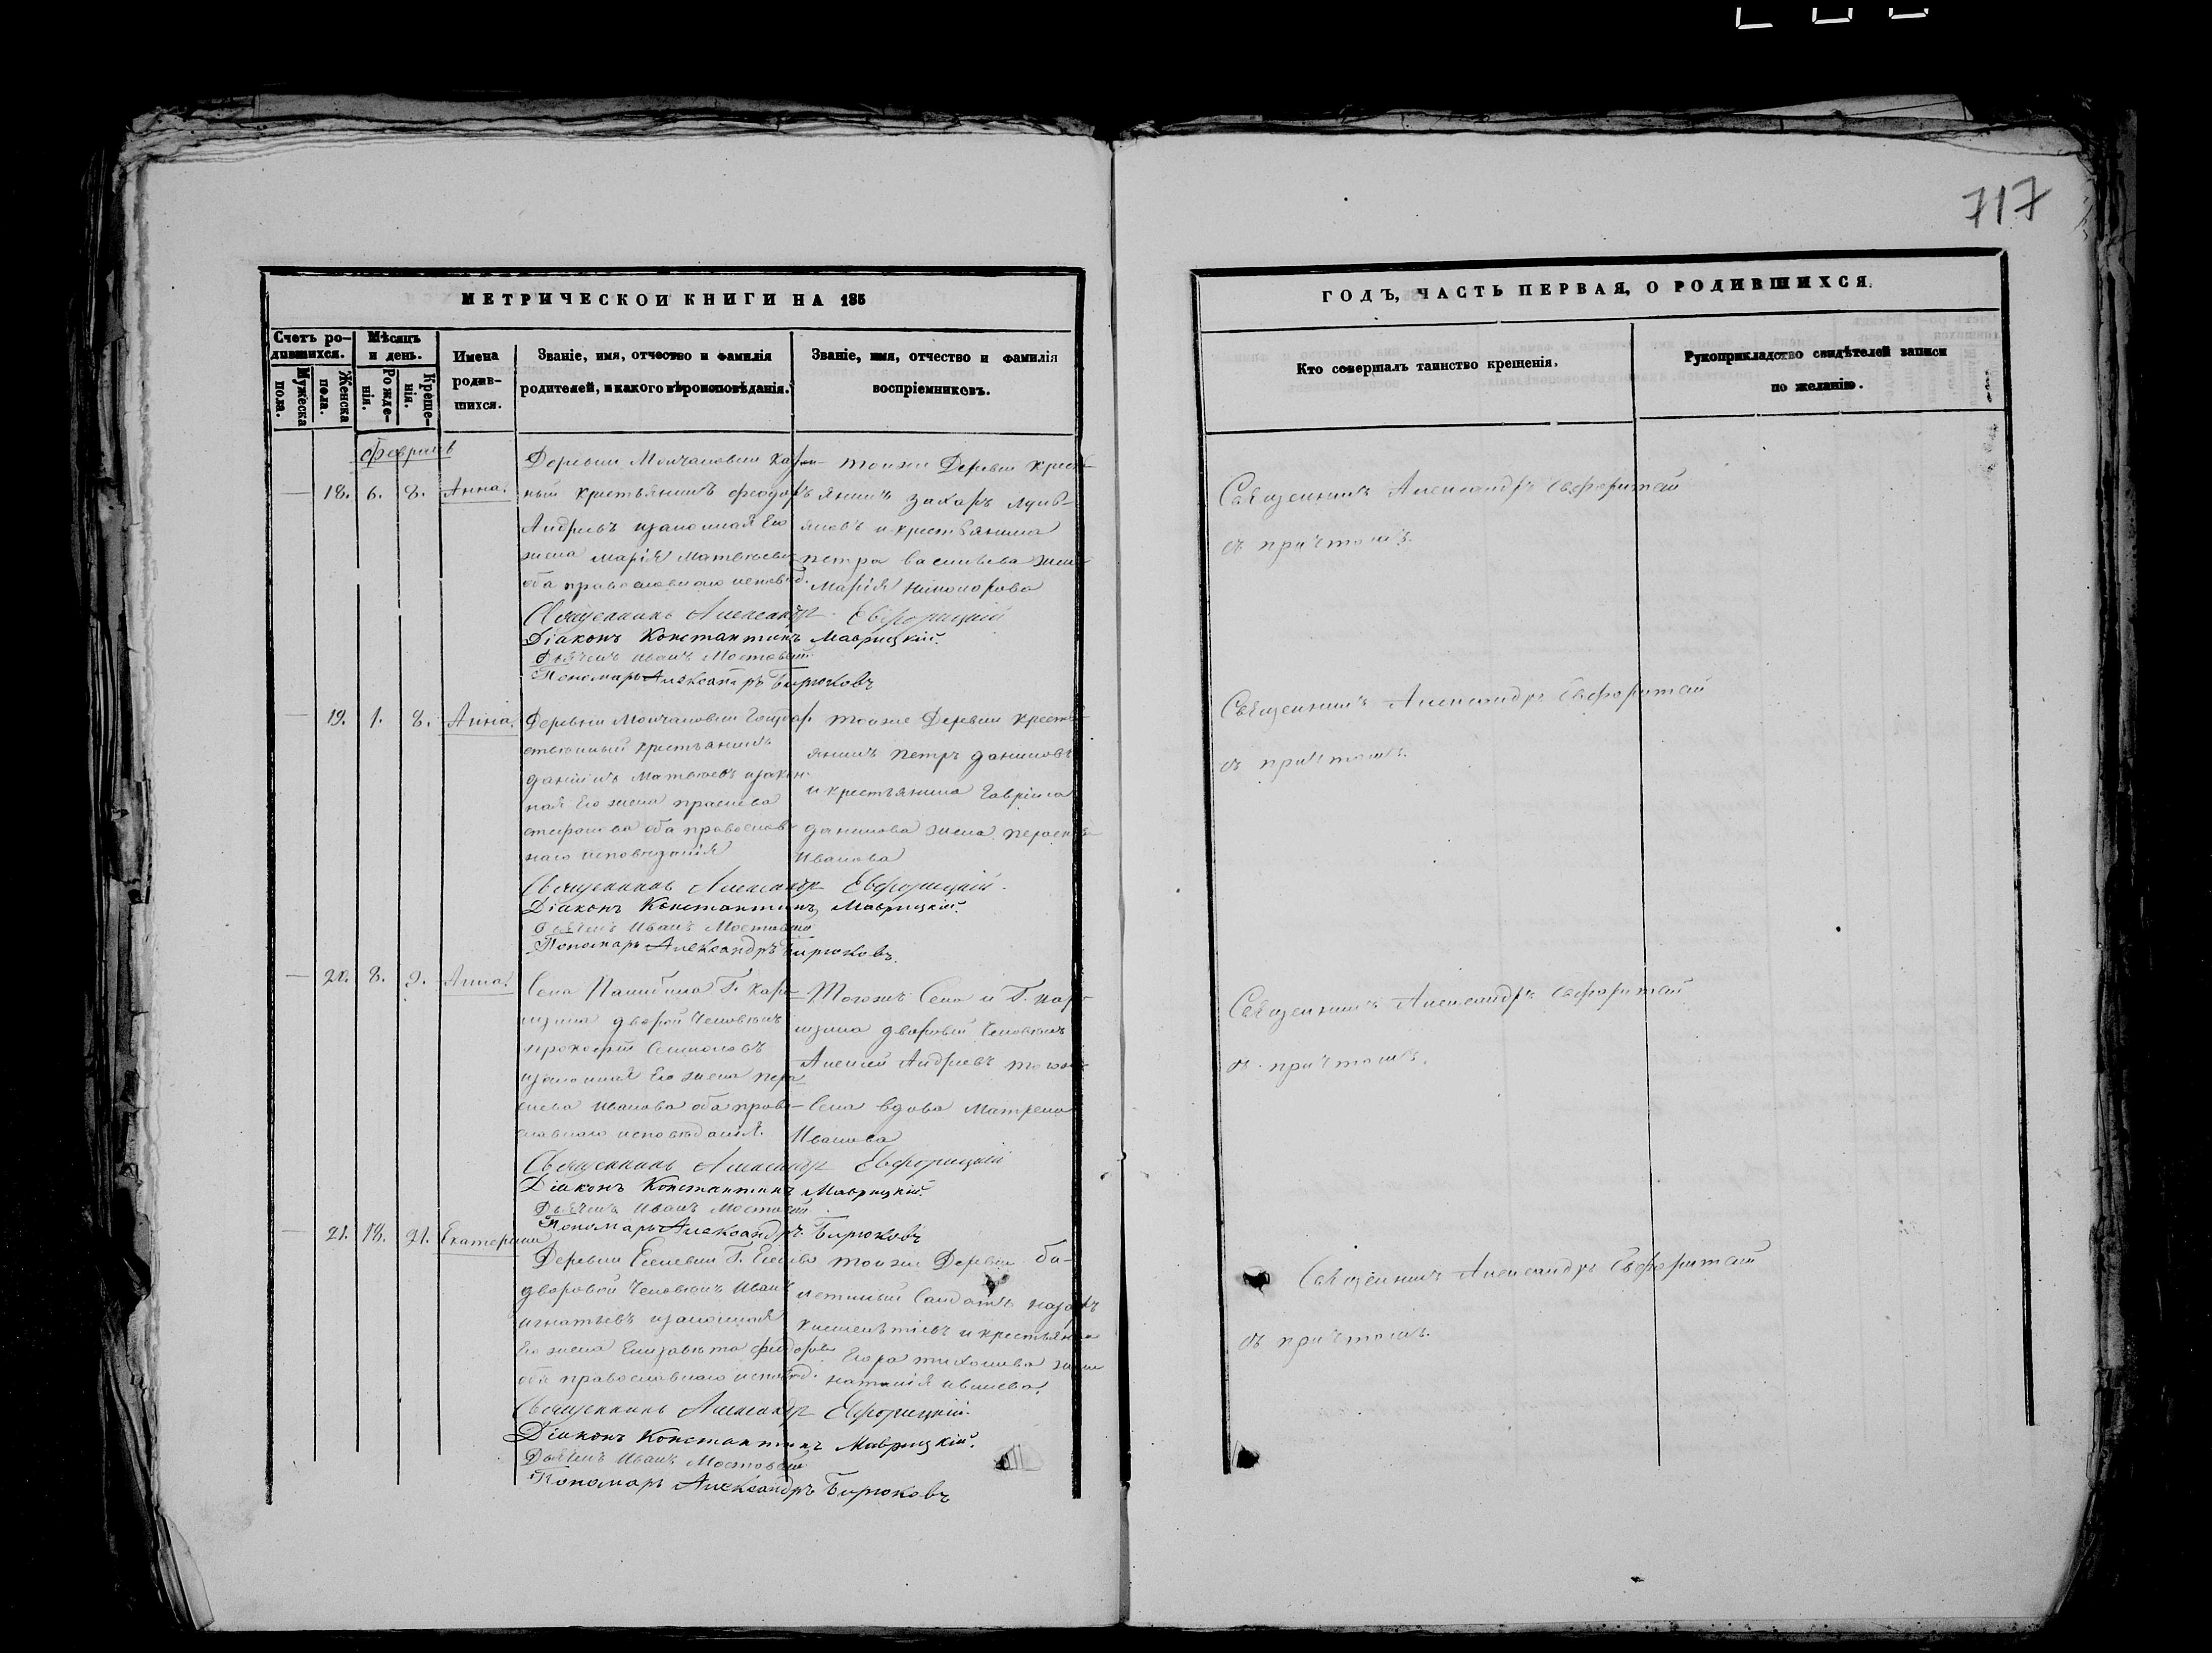 717
МЕТРИЧЕСКОЙ КНИГИ НА 185
ГОДЪ, ЧАСТЬ ПЕРВАЯ, О РОДИВШИХСЯ.
Счетъ родившихся.
Мужеска пола.
Женска пола.
Мѣсяцъ и день.
Рожденія.
Крещенія.
Имена родившихся.
Званіе, имя, отчество и фамилія
родителей, и какого вѣроисповѣданія.
Званіе, имя, отчество и фамилія
воспріемниковъ.
Кто совершалъ таинство крещенія.
Рукоприкладство свидѣтелей записи
по желанію.
Февраль
— 18. 6. 8. Анна.
Деревни Молчановки
крестьянинъ Феодоръ
Андреевъ изаконная Его
жена Марія Матвѣева
оба православнаго исповѣд.
тойже Деревни крестья-
янинъ Захаръ
и крестьянина
Петра Васильева жена
Марія Никонорова
Священникъ Александръ Евфорицкій
Діаконъ Константинъ Маврицкій.
Дьячекъ Иванъ Мостовой
Пономарь Александръ Бирюковъ
Священникъ Александръ Евфорицкій
съ причтомъ.
— 19. 1. 8. Анна.
Деревни Молчановки Государ
ственный крестьянинъ
Даніилъ Матвѣевъ изакон
ная Его жена
оба православ
наго исповѣданія
тойже Деревни кресть
янинъ Петръ Даниловъ
и крестьянина Гавріила
Данилова жена
Иванова
Священникъ Александръ Евфорицкій.
Діаконъ Константинъ Маврицкій.
Дьячекъ Иванъ Мостовой
Пономарь Александръ Бирюковъ.
Священникъ Александръ Евфорицкій
съ причтомъ.
— 20. 8. 9. Анна.
Села Г.
Прокофій
изаконная Его жена
Иванова оба право-
славнаго исповѣданія.
Тогожъ Села и Г.
дворовый Человѣкъ
Алексѣй Андреевъ тогожъ
Села вдова Матрена
Иванова
Священникъ Александръ Евфорицкій
Діаконъ Константинъ Маврицкій.
Дьячекъ Иванъ Мостовой
Пономарь Александръ Бирюковъ
Священникъ Александръ Евфорицкій
съ причтомъ.
— 21. 18. 21. Екатерина
Деревни Г.
дворовой Человѣкъ Иванъ
Игнатьевъ изаконная
Его жена Елизавета Федорова
оба православнаго исповѣд.
тойже Деревни би-
летный Солдатъ
и крестьянина
Егора жена
Наталія
Священникъ Александръ Евфорицкій.
Діаконъ Константинъ Маврицкій.
Дьячекъ Иванъ Мостовой
Пономарь Александръ Бирюковъ
Священникъ Александръ Евфорицкій
съ причтомъ.